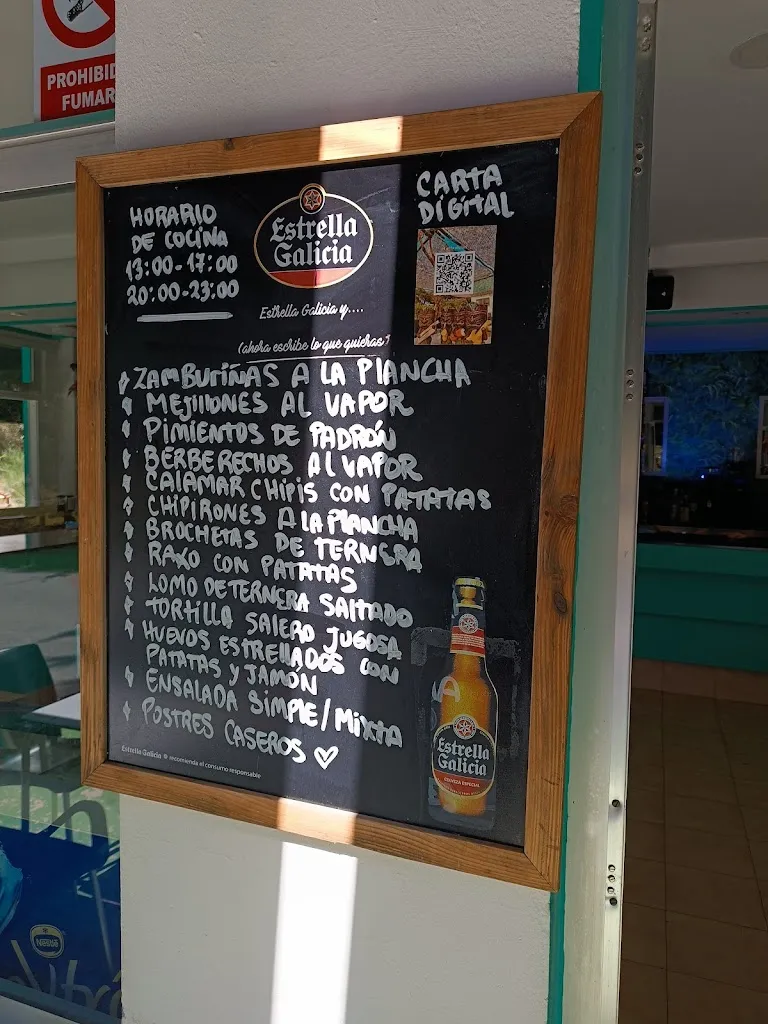 PROHIBID
FUMAR
HORARIO
DE COCINA
13:00-17:00
20:00-23:00
Estrella
Galicia
Estrella Galicia y....
(ahora escribe lo que quieras)
CARTA
DIGITAL
ZAMBURIÑAS A LA PLANCHA
MEJILLONES AL VAPOR
PIMIENTOS DE PADRÓN
BERBERECHOS AL VAPOR
CALAMAR CHIPIS CON PATATAS
CHIPIRONES A LA PLANCHA
BROCHETAS DE TERNERA
RAXO CON PATATAS
LOMO DE TERNERA SALTADO
TORTILLA SALERO JUGOSA
HUEVOS ESTRELLADOS CON
PATATAS Y JAMÓN
ENSALADA SIMPLE/MIXTA
POSTRES CASEROS ♡
Estrella Galicia recomienda el consumo responsable
Estrella
Galicia
CERVEZA ESPECIAL
Nestlé